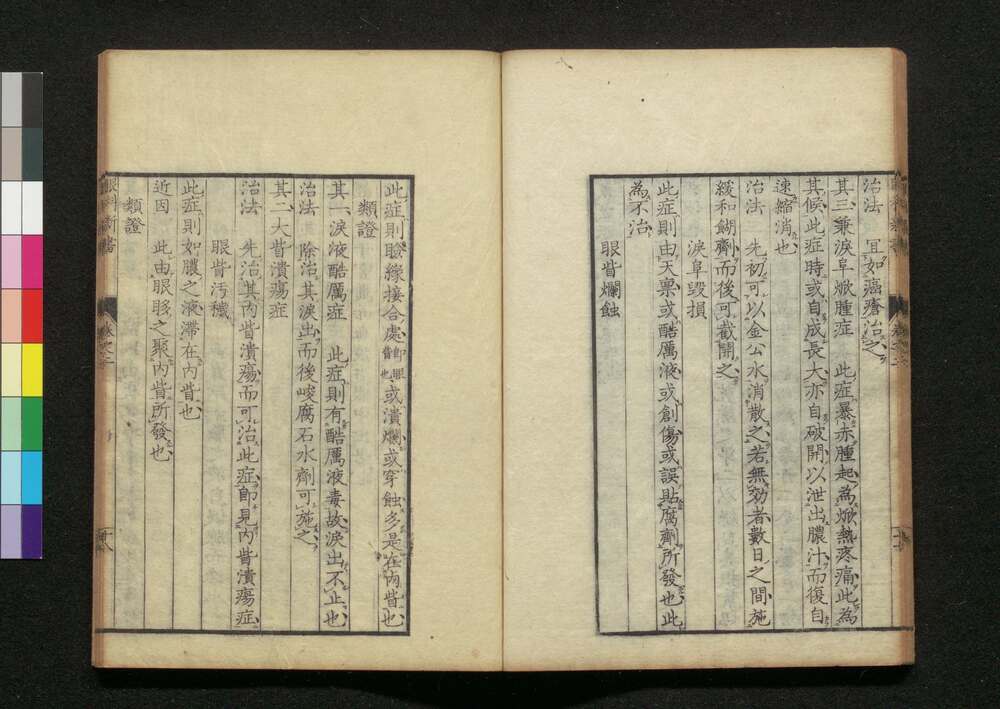 治法　宜如癌瘡治之
其三兼淚阜焮腫症　此症暴赤腫起為焮熱疼痛此為
其候此症時或自成長大亦自破開以泄出膿汁而復自
速縮消也
治法　先初可以金公水消散之若無効者數日之間施
緩和餬劑而後可截開之
淚阜毀損
此症則由天稟或酷厲液或創傷或誤貼腐劑所發也此
為不治
眼眥爛蝕
此症則瞼緣接合處即眼眥也或潰爛或穿蝕多是在內眥也
類證
其一淚液酷厲症　此症則有酷厲液毒故淚出不止也
治法　除治其淚出而後峻腐石水劑可施之
其二大眥潰瘍症
治法　先治其內眥潰瘍而可治此症即見內眥潰瘍症
眼眥汚穢
此症則如膿之液滯在內眥也
近因　此由眼眵之聚內眥所發也
類證
眼科新書
卷之二